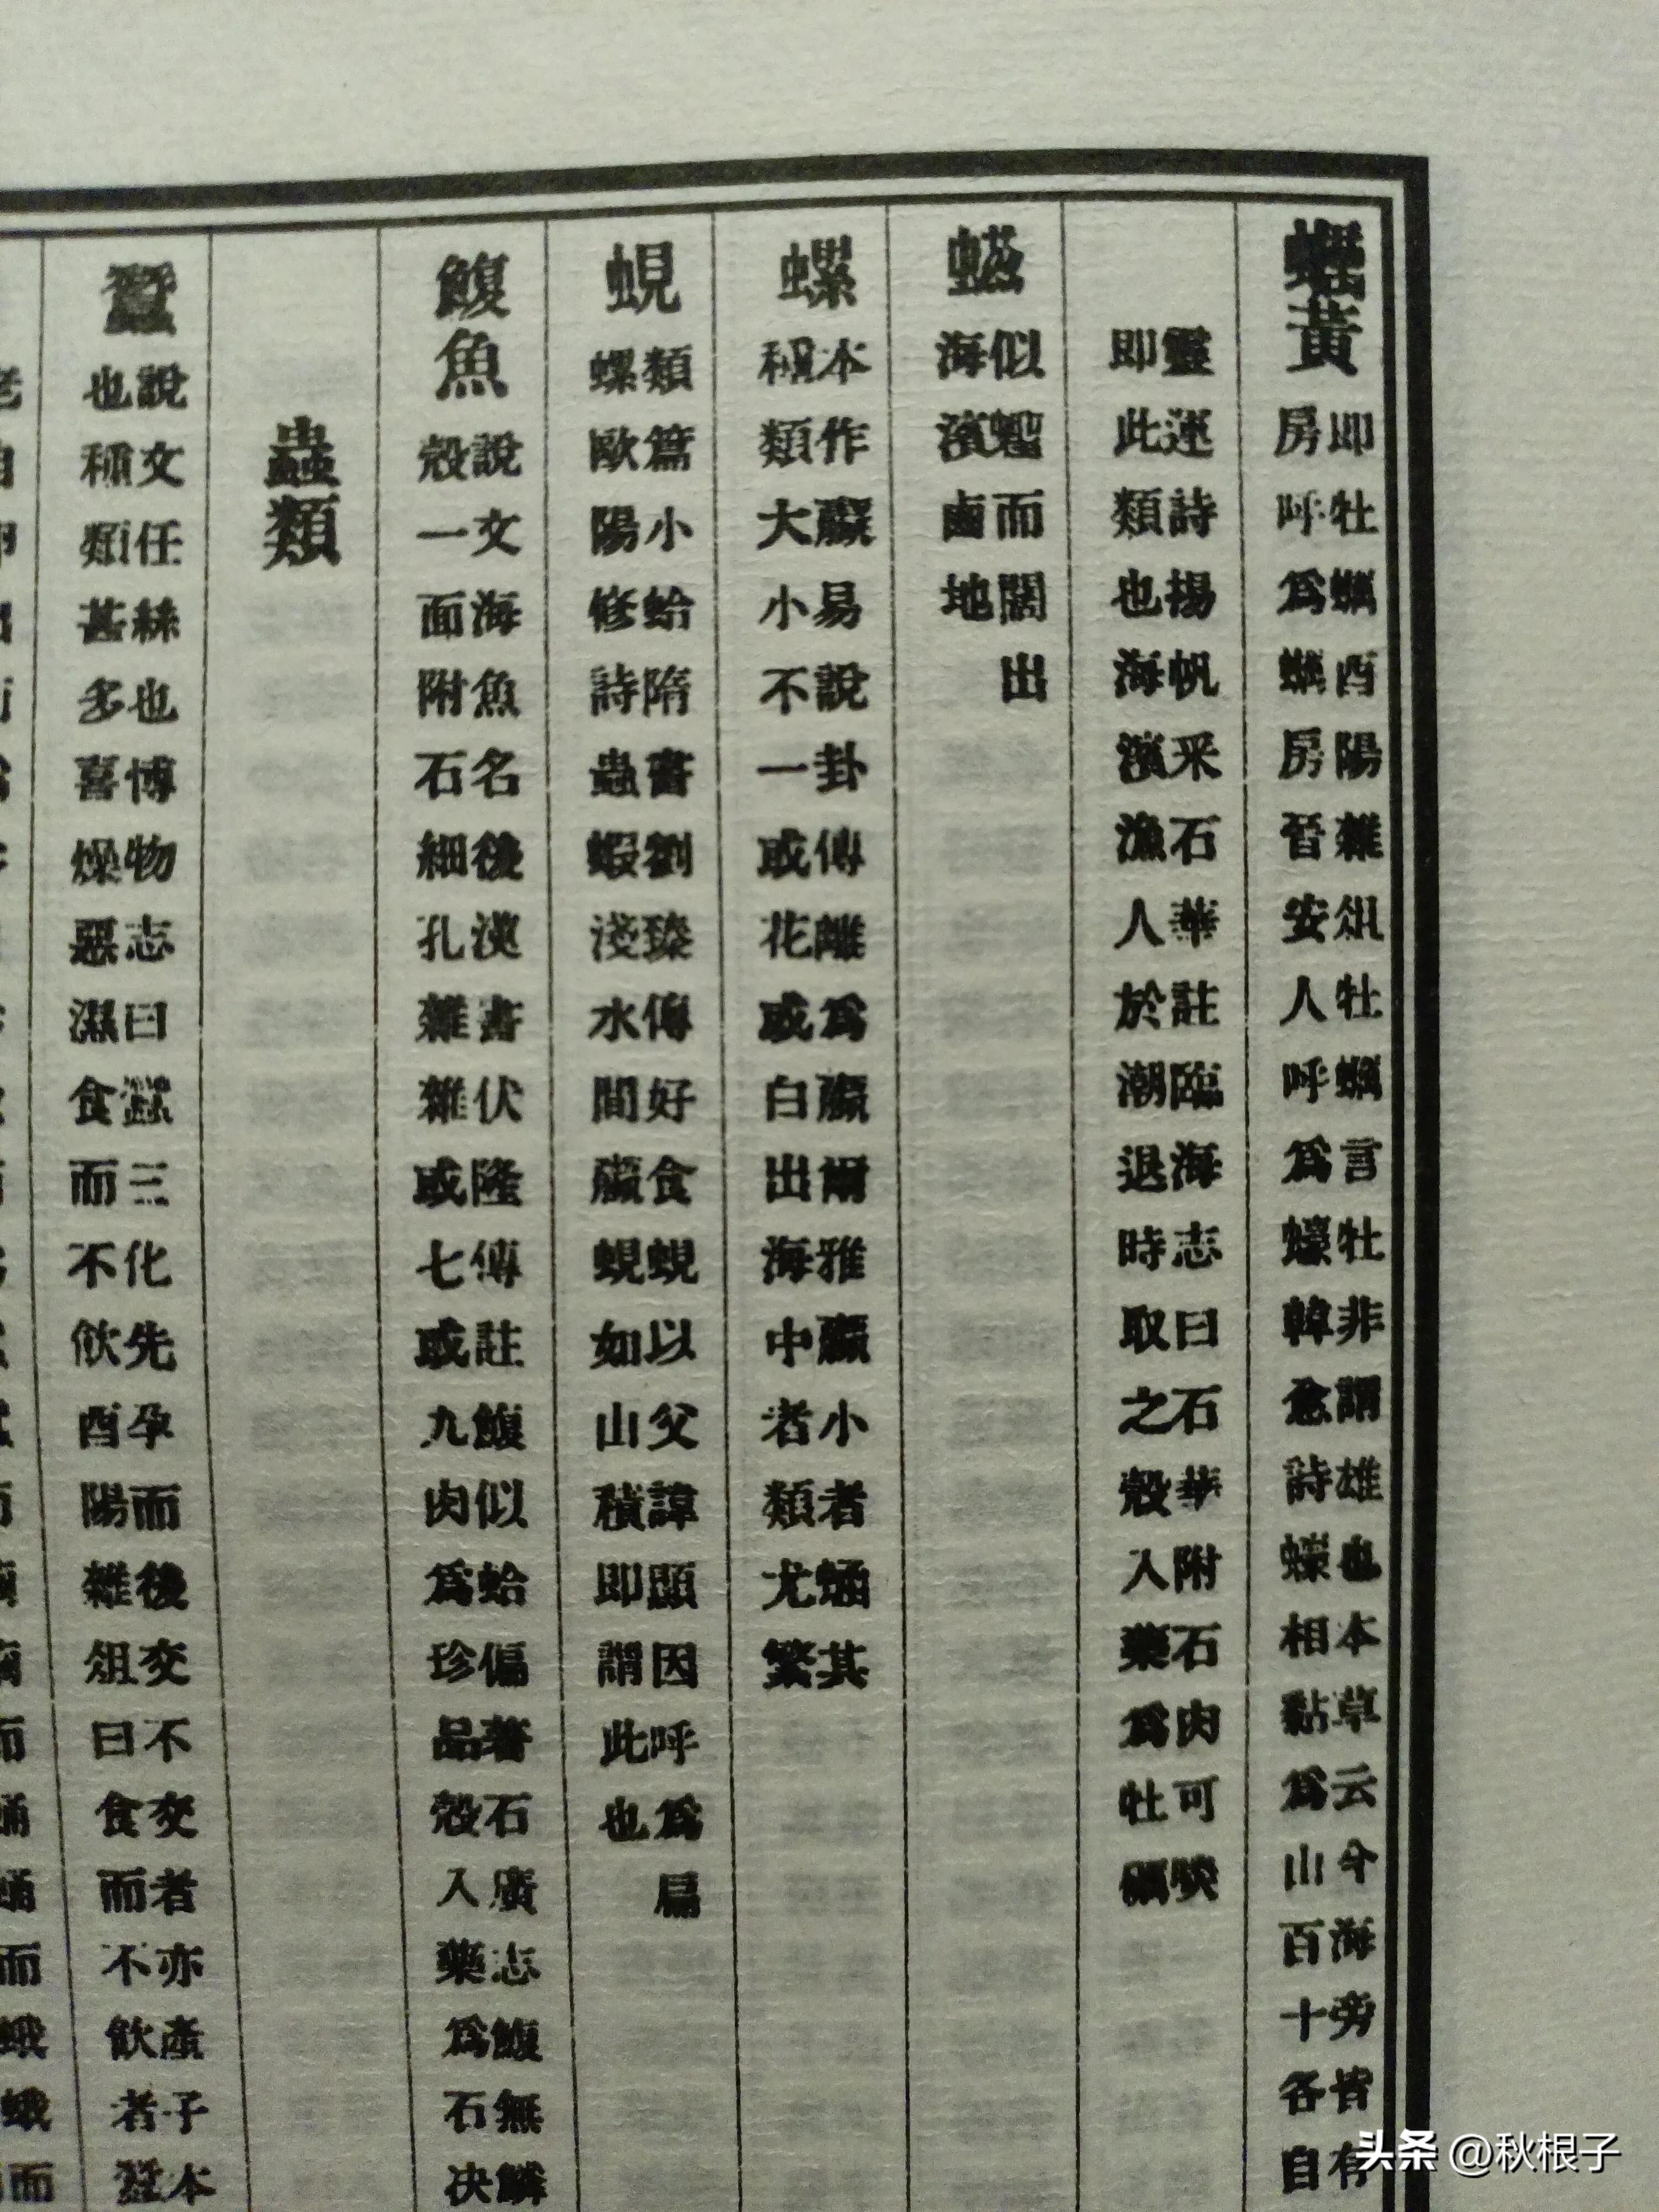 蠣黃
即牡蠣酉陽雜俎牡蠣言牡非謂雄也本草云今海旁皆有
房呼爲蠣房晉安人呼爲蠔韓愈詩蠔相黏爲山百十各自
靈運詩揚帆采石華註臨海志曰石華附石肉可啖
即此類也海濱漁人於潮退時取之殼入藥爲牡礪
似而闊出
海濱鹵地
螺
本作蠃易說卦傳離爲蠃爾雅蠃小者蜬其
種類大小不一或花或白出海中者類尤繁
蜆
類篇小蛤隋書劉臻傳好食蜆以父諱顯因呼爲扁
螺歐陽修詩蟲蝦淺水間蠃蜆如山積即謂此也
鰒魚
說文海魚名後漢書伏隆傳註鰒似蛤偏著石廣志鰒無鱗
殼一面附石細孔雜雜或七或九肉爲珍品殼入藥爲石决
蟲類
蠶
說文任絲也博物志曰蠶三化先孕而後交不交者亦產子本
也種類甚多喜燥惡濕食而不飲酉陽雜俎曰食而不飲者蠶
而蛹蛹而蛾蛾而
头条 @秋根子